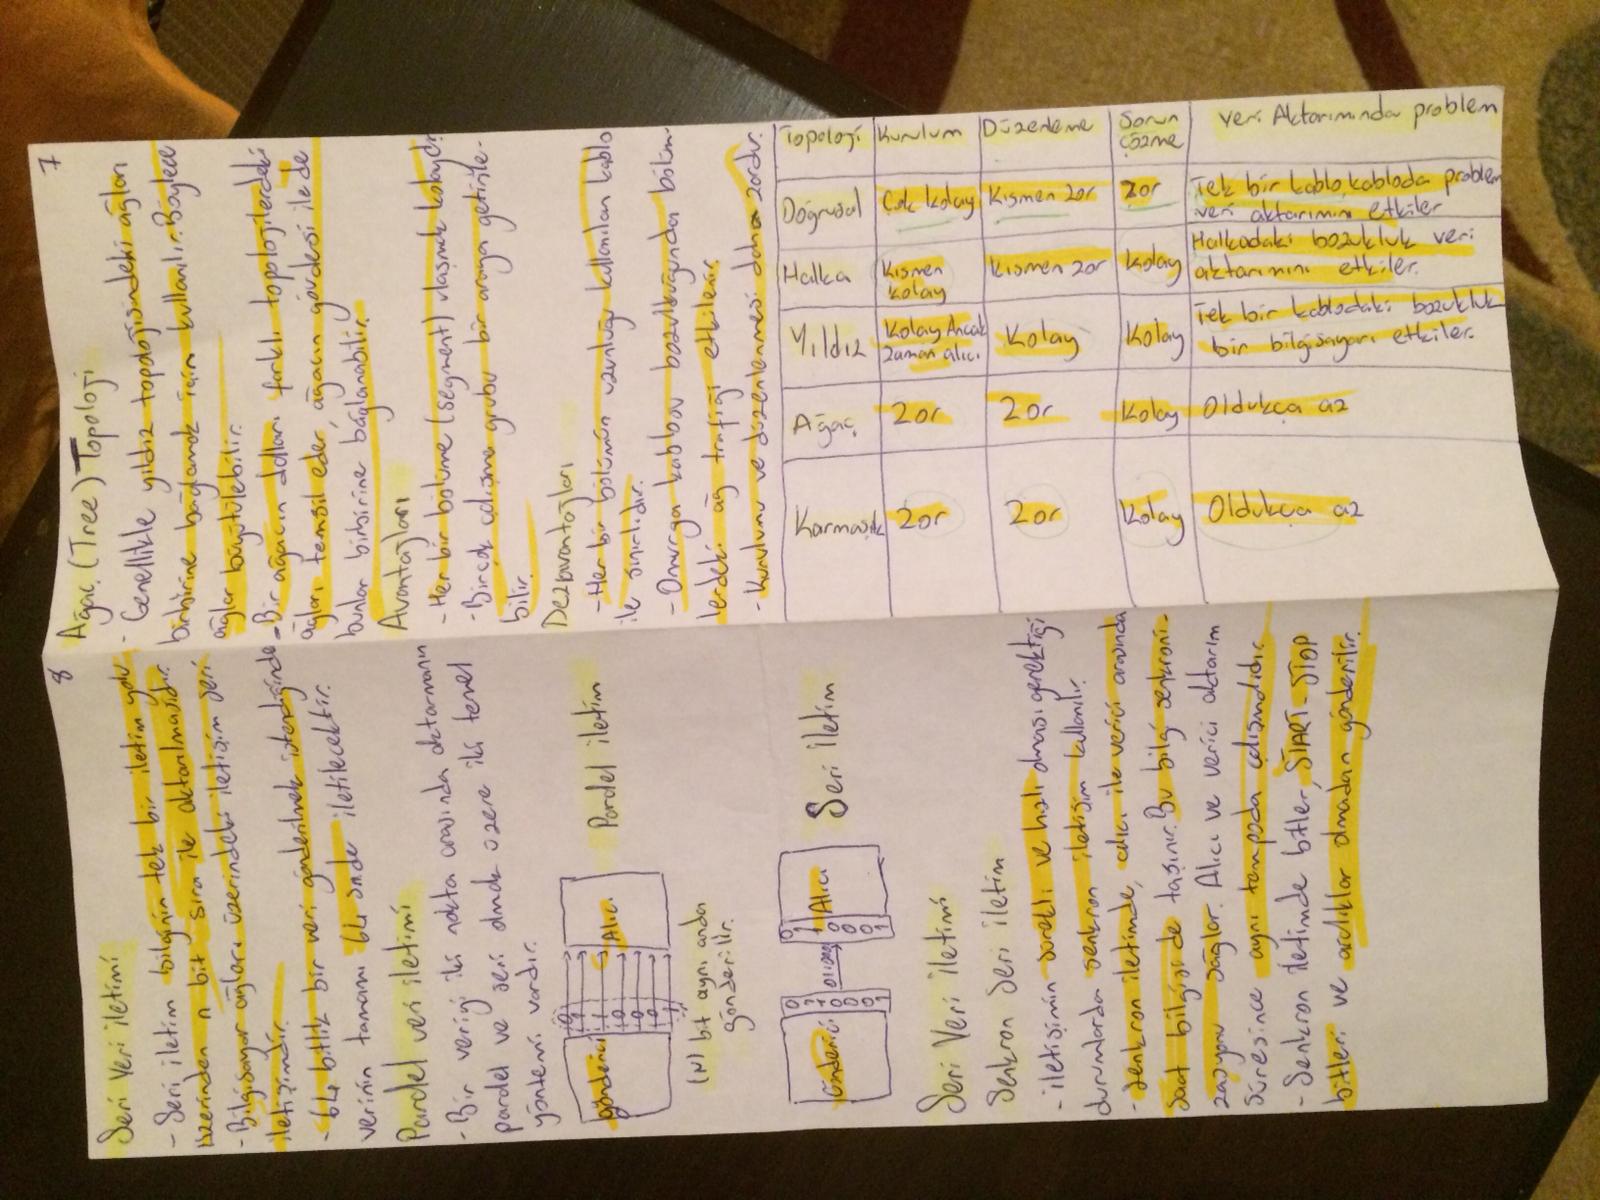 8
Seri Veri iletimi
- Seri iletim bilginin tek bir iletim yolu
üzerinden n bit sıra ile aktarılmasıdır.
- Bilgisayar ağları üzerindeki iletişim seri
iletişimdir.
- 64 bitlik bir veri gönderilmek istendiğinde
verinin tamamı 64 snde iletilecektir.
Paralel veri iletimi
- Bir veriyi iki nokta arasında aktarmanın
paralel ve seri olmak üzere iki temel
yöntemi vardır.
gönderici
0
1
1
0
0
0
0
1
Alıcı
Paralel iletim
(N) bit aynı anda
gönderilir.
Gönderici
0
1
1
0
0
0
0
1
011000
0
1
1
0
0
0
0
1
Alıcı
Seri iletim
Seri Veri iletimi
Senkron Seri iletim
- iletişimin sürekli ve hızlı olması gerektiği
durumlarda senkron iletişim kullanılır.
- Senkron iletimde, alıcı ile verici arasında
saat bilgisi de taşınır. Bu bilgi senkroni-
zasyonu sağlar. Alıcı ve verici aktarım
süresince aynı tempoda çalışmalıdır.
- Senkron iletimde bitler, START-STOP
bitleri ve aralıklar olmadan gönderilir.
7
Ağaç (Tree) Topoloji
- Genellikle yıldız topolojisindeki ağları
birbirine bağlamak için kullanılır. Böylece
ağlar büyütülebilir.
- Bir ağacın dalları farklı topolojilerdeki
ağları temsil eder, ağacın gövdesi ile de
bunlar birbirine bağlanabilir.
Avantajları
- Her bir bölüme (segment) ulaşmak kolaydır
- Birçok çalışma grubu bir araya getirile-
bilir.
Dezavantajları
- Her bir bölümün uzunluğu kullanılan kablo
ile sınırlıdır.
- Omurga kablosu bozulduğunda bölüm-
lerdeki ağ trafiği etkilenir.
- Kurulumu ve düzenlenmesi daha zordur.
Topoloji Kurulum Düzenleme Sorun Çözme Veri Aktarımında problem
Doğrusal Çok kolay Kısmen zor zor Tek bir kablo, kabloda problem
veri aktarımını etkiler
Halka Kısmen kolay Kısmen zor Kolay Halkadaki bozukluk veri
aktarımını etkiler.
Yıldız Kolay Ancak zaman alıcı Kolay Kolay Tek bir kablodaki bozukluk
bir bilgisayarı etkiler.
Ağaç Zor Zor Kolay Oldukça az
Karmaşık Zor Zor Kolay Oldukça az